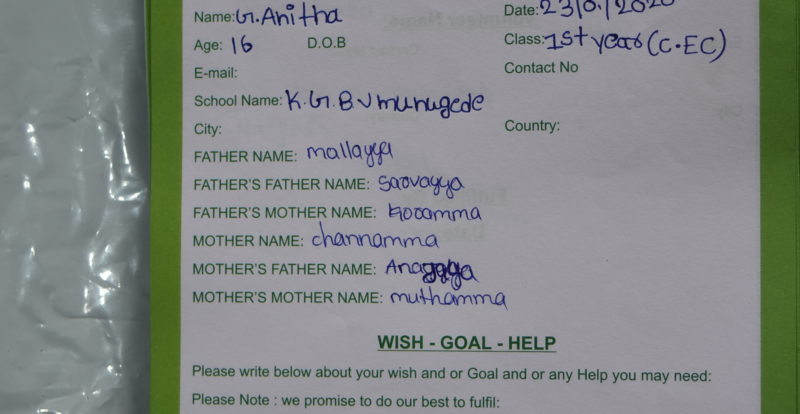 Name: G. Anitha Date: 23/01/2020
Age: 16 D.O.B Class: 1st year (C.EC)
E-mail: Contact No
School Name: K.G.B.V munugede
City: Country:
FATHER NAME: mallayya
FATHER'S FATHER NAME: Saovayya
FATHER'S MOTHER NAME:
MOTHER NAME: channamma
MOTHER'S FATHER NAME:
MOTHER'S MOTHER NAME: muthamma
WISH - GOAL - HELP
Please write below about your wish and or Goal and or any Help you may need:
Please Note : we promise to do our best to fulfil: